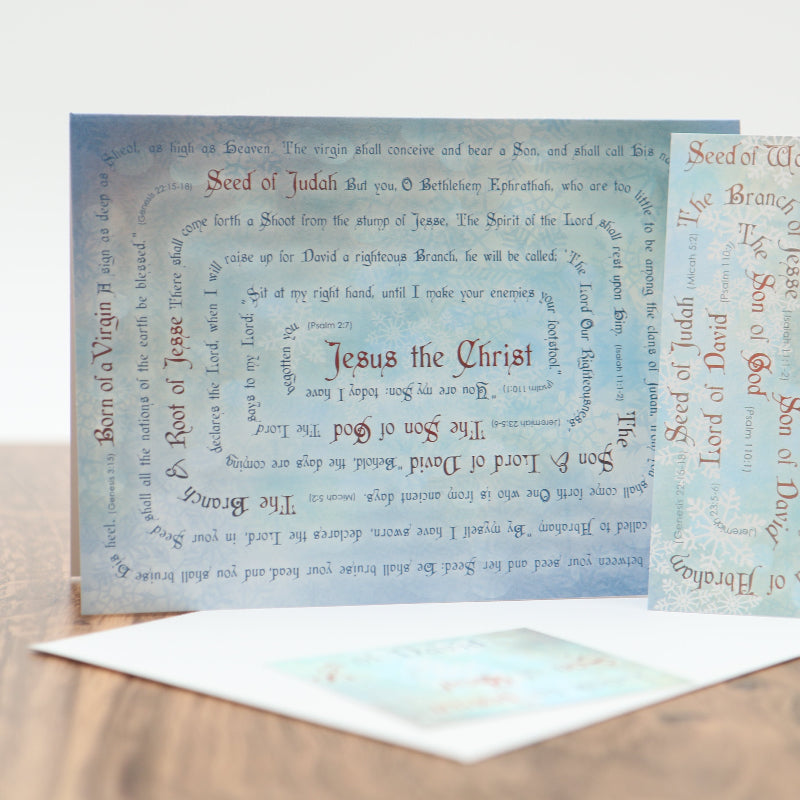 between your seed and her Seed: He shall bruise your head, and you shall bruise
His heel. (Genesis 3:15) Born of a Virgin A sign as deep as
Sheol, as high as Heaven. The virgin shall conceive and bear a Son, and shall call His
called to Abraham "By myself I have sworn, declares the Lord, in your Seed
shall all the nations of the earth be blessed." (Genesis 22:15-18)
Seed of Judah But you, O Bethlehem Ephrathah, who are too
little to be among the clans of Judah, from you
shall come forth One who is from ancient days. (Micah 5:2) The Branch
& Root of Jesse There shall
come forth a Shoot from the stump of Jesse, The Spirit of the Lord
shall rest upon Him (Isaiah 11:1-2) The
Son & Lord of David "Behold, the days are coming
declares the Lord, when I will
raise up for David a righteous Branch, he will be called: 'The
Lord Our Righteousness.'
(Jeremiah 23:5-6) The Son of God The Lord
says to my Lord:
"Sit at my right hand, until I make your enemies
your footstool."
(Psalm 110:1) "You are my Son: today I have
begotten you
(Psalm 2:7)
Jesus the Christ
Seed of
The Branch of Jesse
The Son of God
(Psalm 110:1)
Son of David
Seed of Judah (Micah 5:2)
Lord of David
(Genesis 22:16-18)
(Jeremiah 23:5-6)
of Abraham